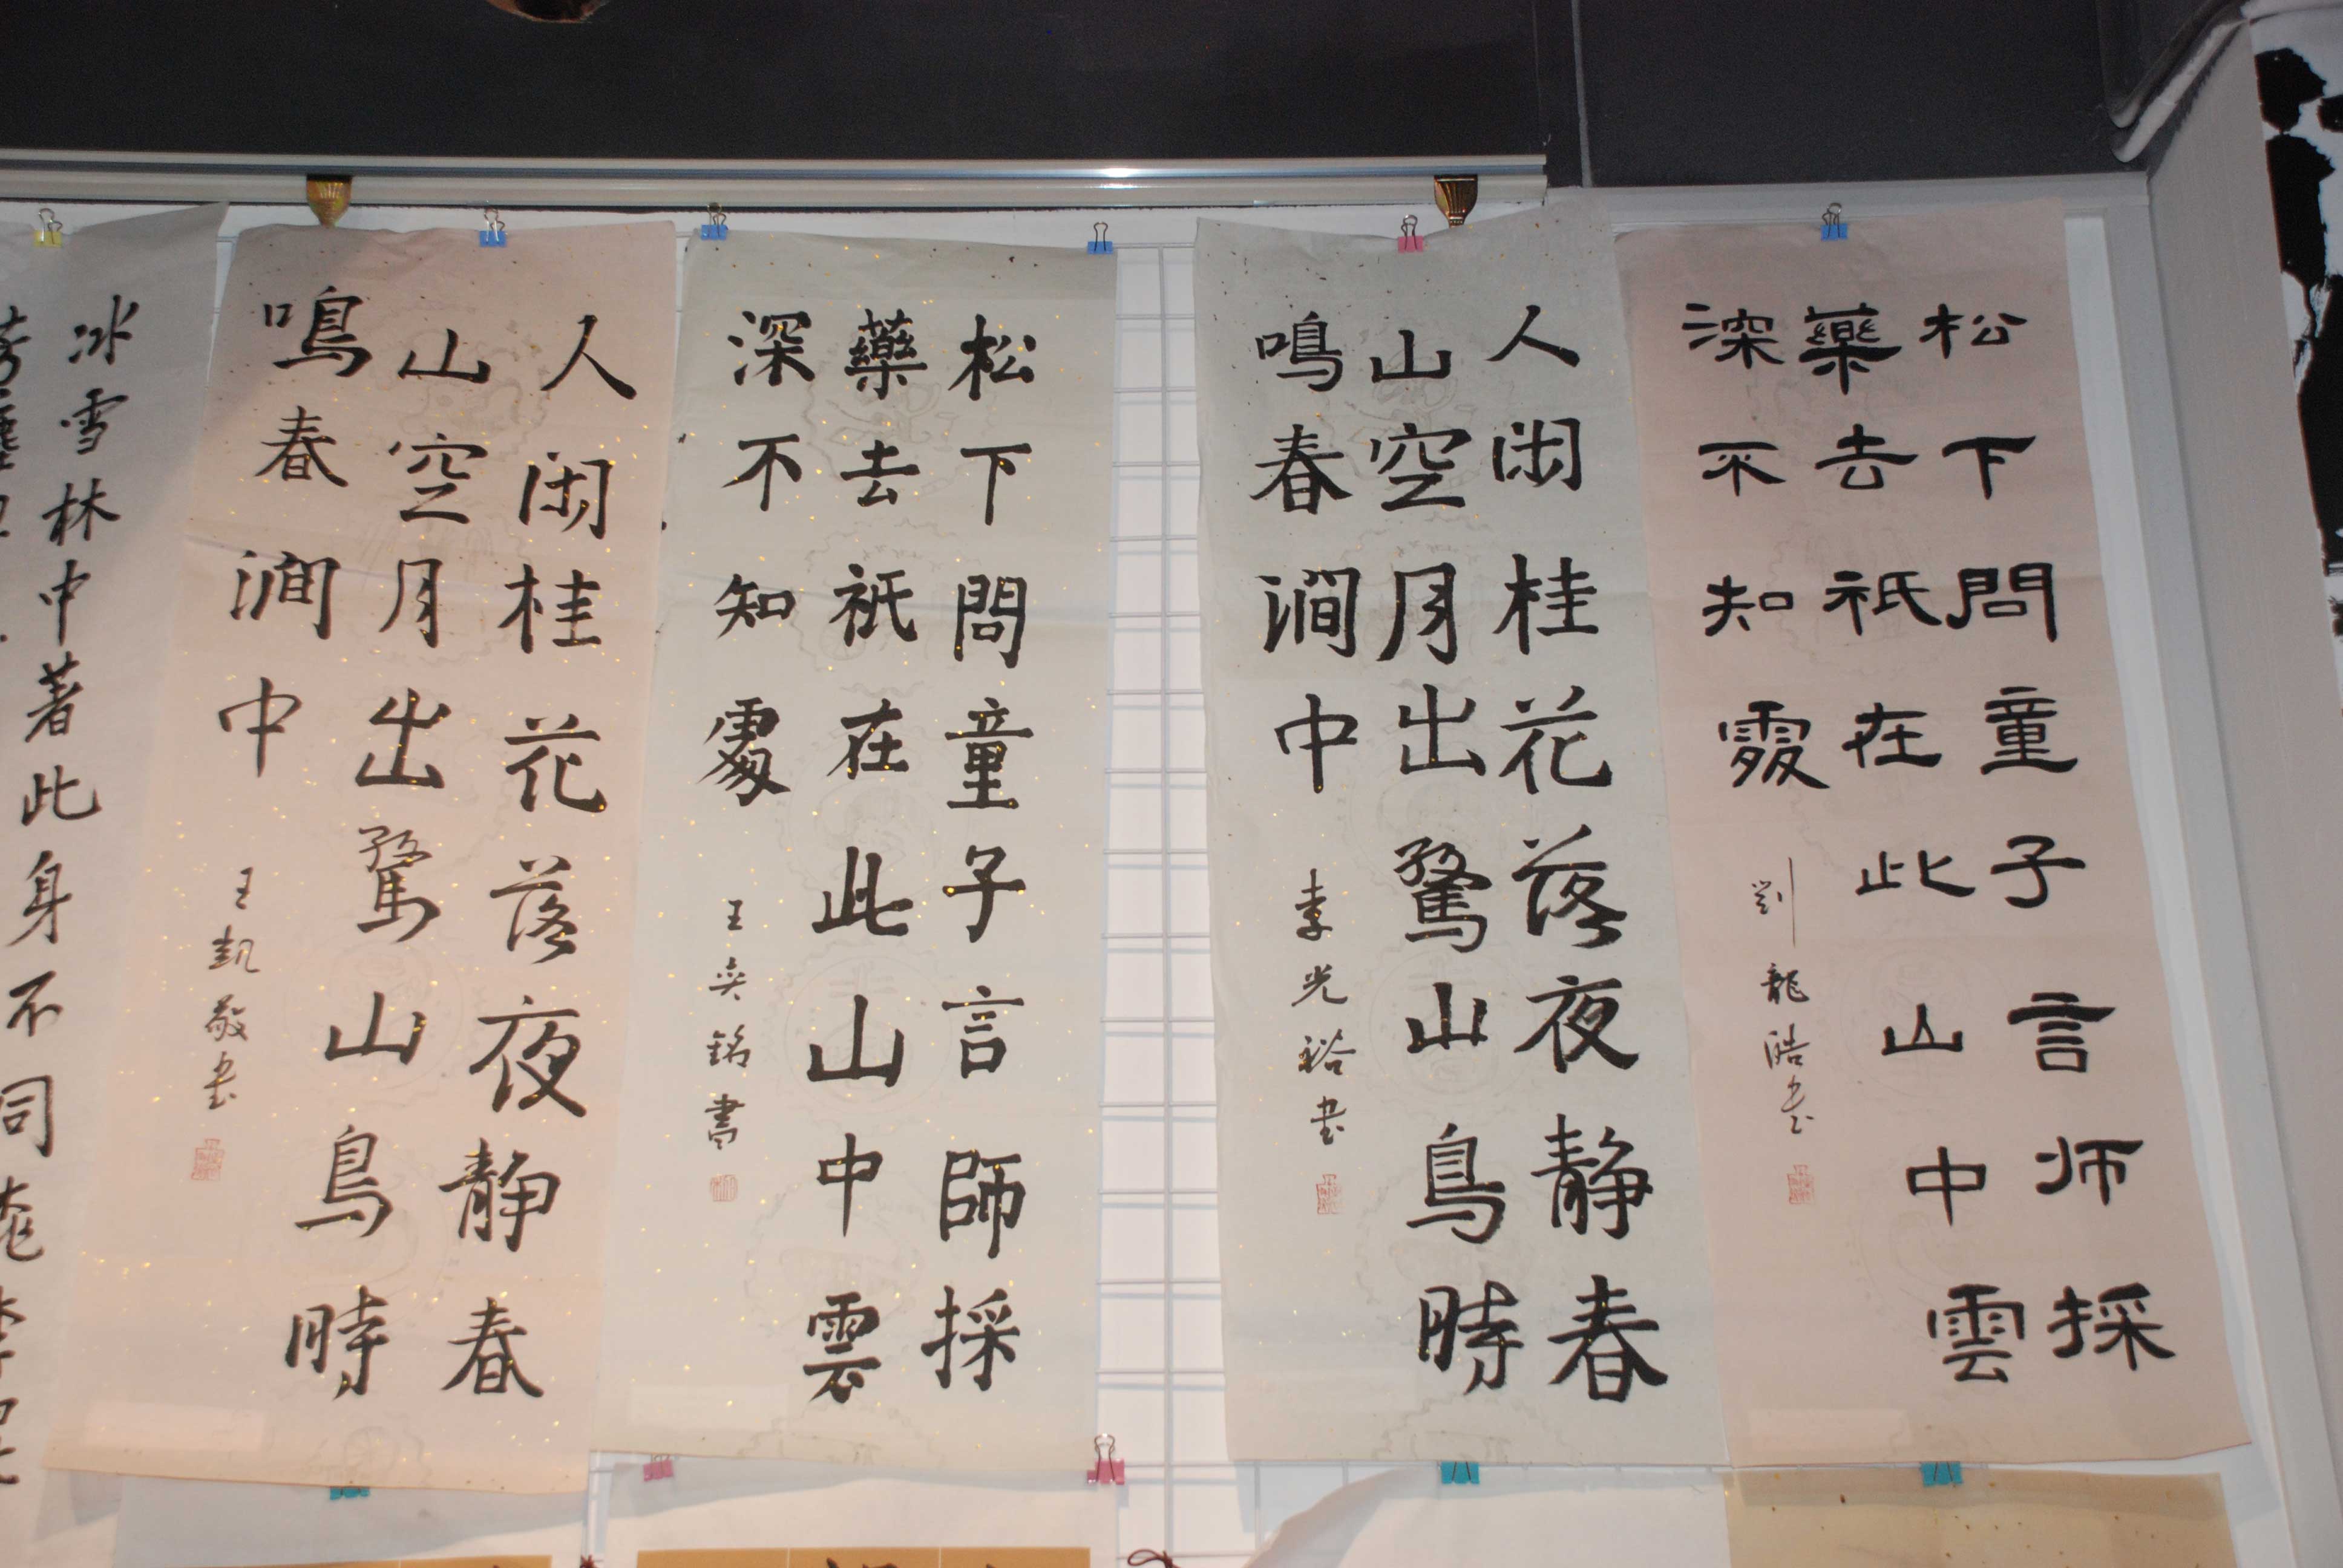 松下問童子言师採
藥去祇在此山中雲
深不知處
劉龍浩书
人闲桂花落夜静春
山空月出驚山鳥時
鳴春澗中
李光裕书
松下問童子言師採
藥去祇在此山中雲
深不知處
王奕銘書
人闲桂花落夜静春
山空月出驚山鳥時
鳴春澗中
王凱敬书
冰雪林中著此身不同